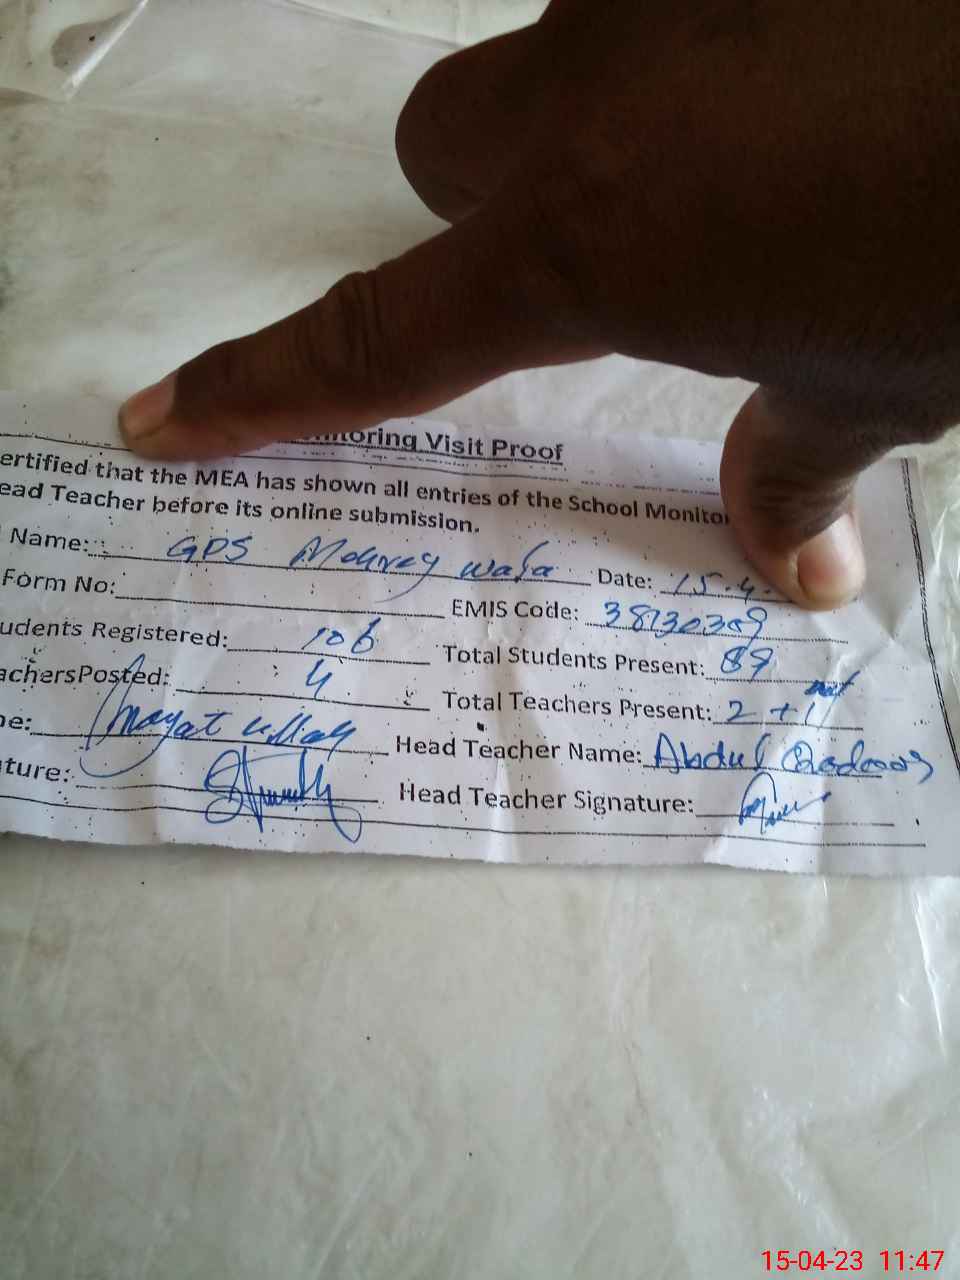 nitoring Visit Proof
ertified that the MEA has shown all entries of the School Monitor
ead Teacher before its online submission.
Name: GPS wala Date: 15.4.
Form No: EMIS Code: 38130309
udents Registered: 106 Total Students Present: 89
achersPosted: 4 Total Teachers Present: 2 + 1
ne: Inayat Ullah Head Teacher Name: Abdul Qadoos
ture: Head Teacher Signature:
15-04-23 11:47